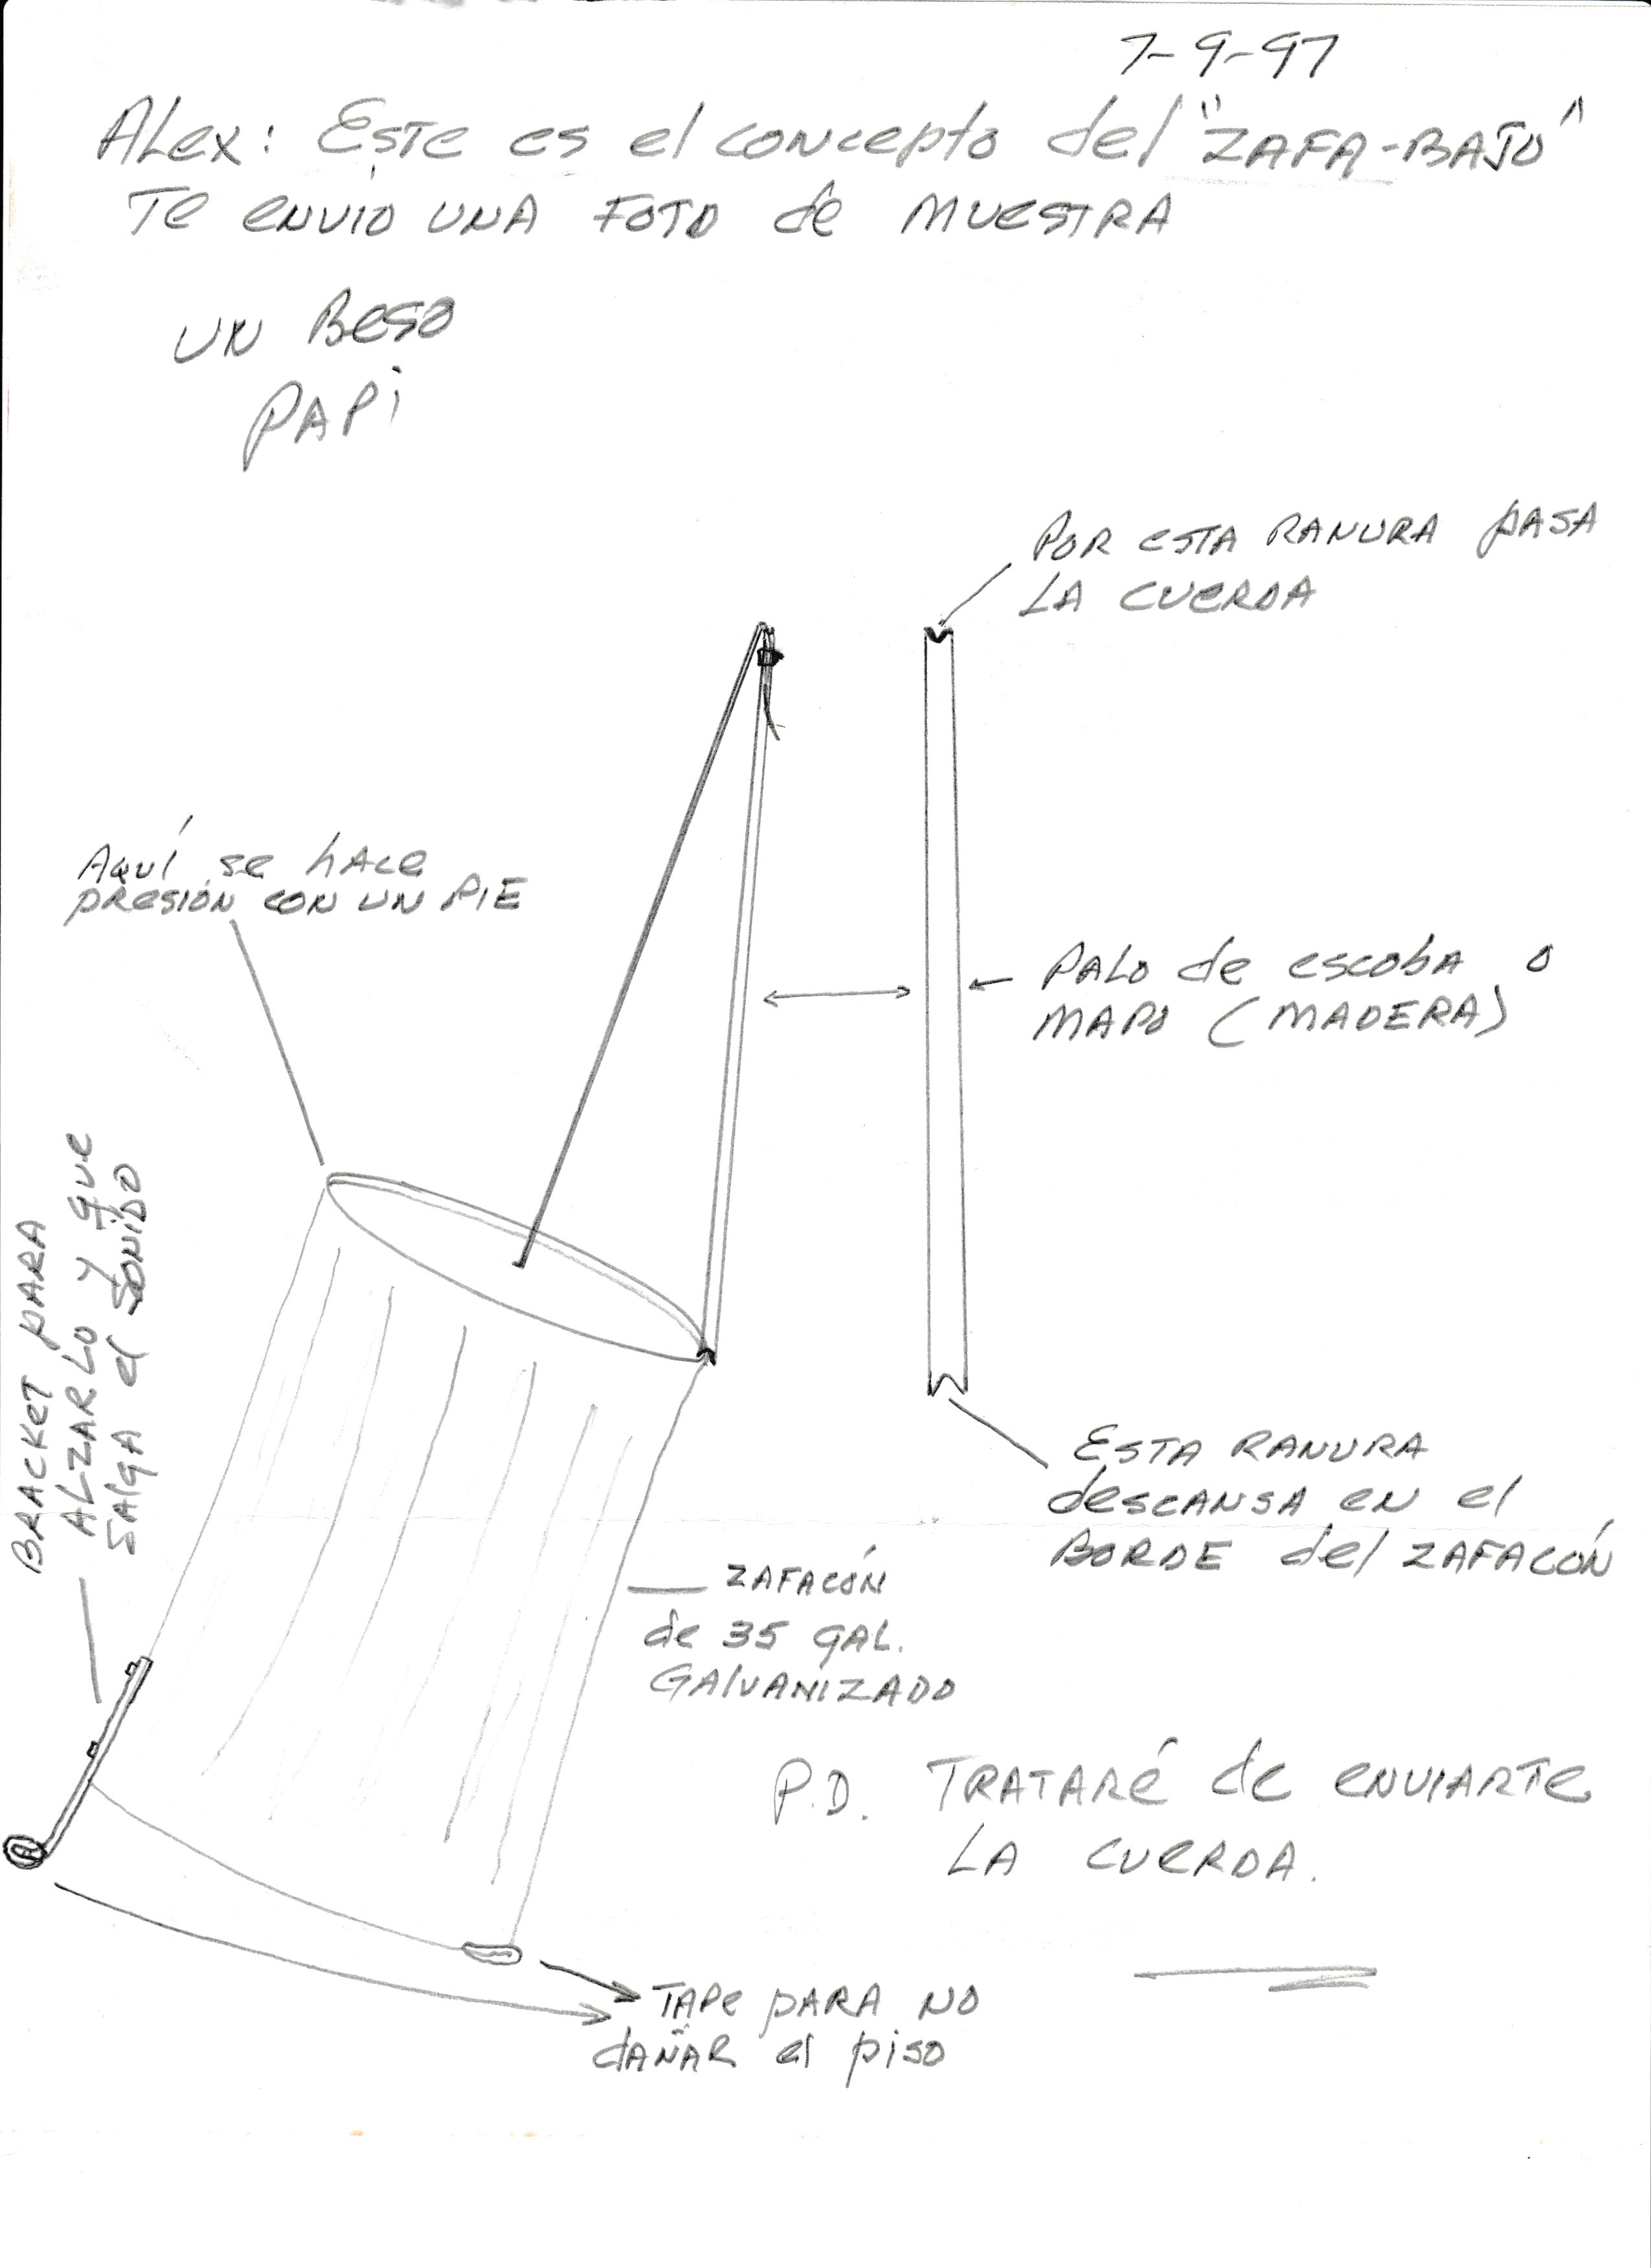 7-9-97
Alex: Este es el concepto del "ZAFA-BAJO"
Te envío una foto de muestra
un beso
Papi
Por esta ranura pasa
la cuerda
Aquí se hace
presión con un pie
Palo de escoba o
mapo (madera)
Bracket para
alzarlo y que
salga el sonido
Esta ranura
descansa en el
borde del zafacón
zafacón
de 35 gal.
galvanizado
P.D. Trataré de enviarte
la cuerda.
Tape para no
dañar el piso